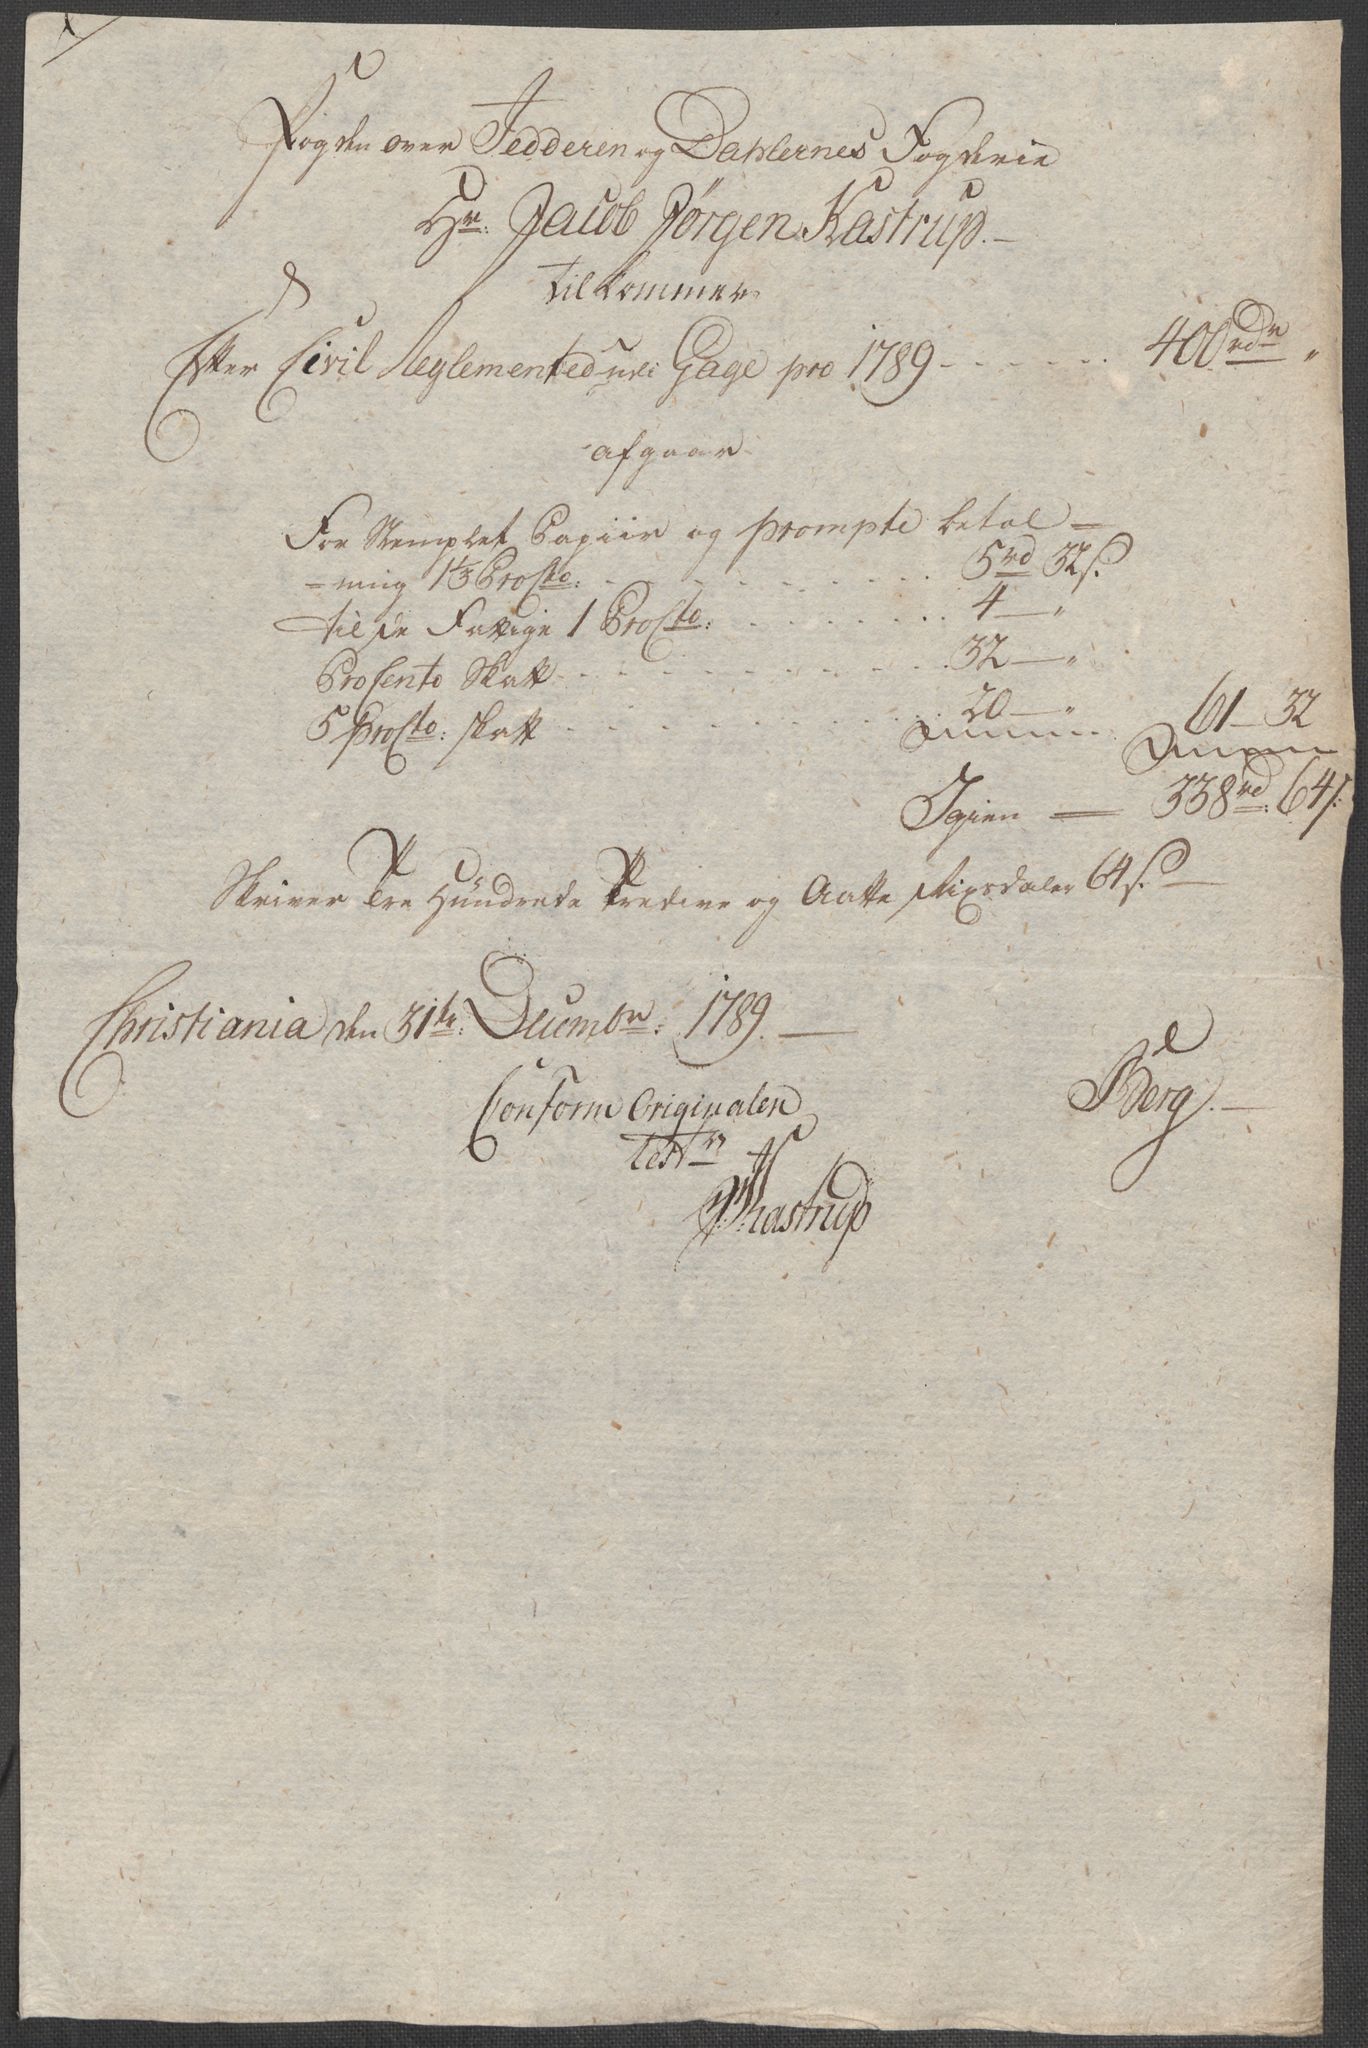 1
Fogden over Jedderen og Dahlernes Fogderie
Hr: Jacob Jørgen Kastrup.—
tilkommer
Efter Civil Reglemented udi Gage pro 1789 - - - - - - 400 rdr "
afgaar
For Stemplet Papiir og prompte betal=
=ning 1⅓ ProCto: - - - - - - 5 rd 32 s.
til de Fattige 1 ProCto: - - - - - - 4 — "
ProCento Skatt - - - - - - 32 — "
5 ProCto: Skatt - - - - - - 20 — " 61 — 32
Igien — 338 rd: 64 s:
Skriver Tre Hundrede Tredive og Aatte Rixdaler 64 s. —
Christiania den 31te: Decembr: 1789. —
Berg. —
Conform Originalen
test:
JJKastrup